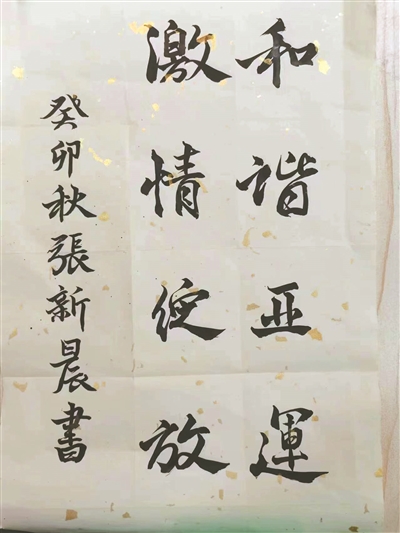 和谐亚運
激情绽放
癸卯秋張新晨書